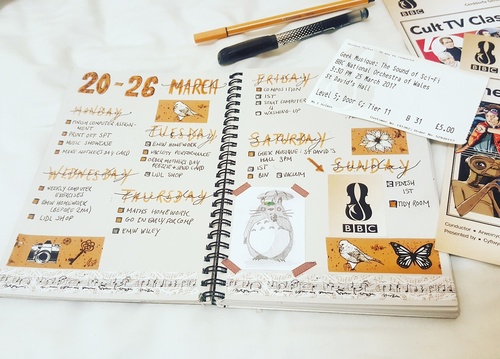 20-26 MARCH
MONDAY
FINISH COMPUTER ASSIGN-
MENT
PRINT OFF
MUSIC SHOWCASE
MAKE MOTHER'S DAY CARD
TUESDAY
EMW HOMEWORK
VARIETY PERFORMANCE
ORDER MOTHERS DAY
CARD
LIDL SHOP
WEDNESDAY
WEEKLY COMPUTER
EXERCISES
EMW HOMEWORK
(BEFORE 2PM)
LIDL SHOP
THURSDAY
MATHS HOMEWORK
GO IN EARLY FOR COMP
EMW WILEY
FRIDAY
COMPOSITION
IST
START COMPUTER
WASHING-UP
SATURDAY
GEEK MUSIQUE: ST DAVID'S
HALL 3PM
IST
BIN
VACUUM
SUNDAY
FINISH
IST
TIDY ROOM
BBC
Geek Musique: The Sound of Sci-Fi
BBC National Orchestra of Wales
3:00 PM 25 March 2017
St David's Hall
Level 5, Door C, Tier 11
B 31
£5.00
BBC
Cult TV Class
BBC
Conductor
Presented by
Conductor